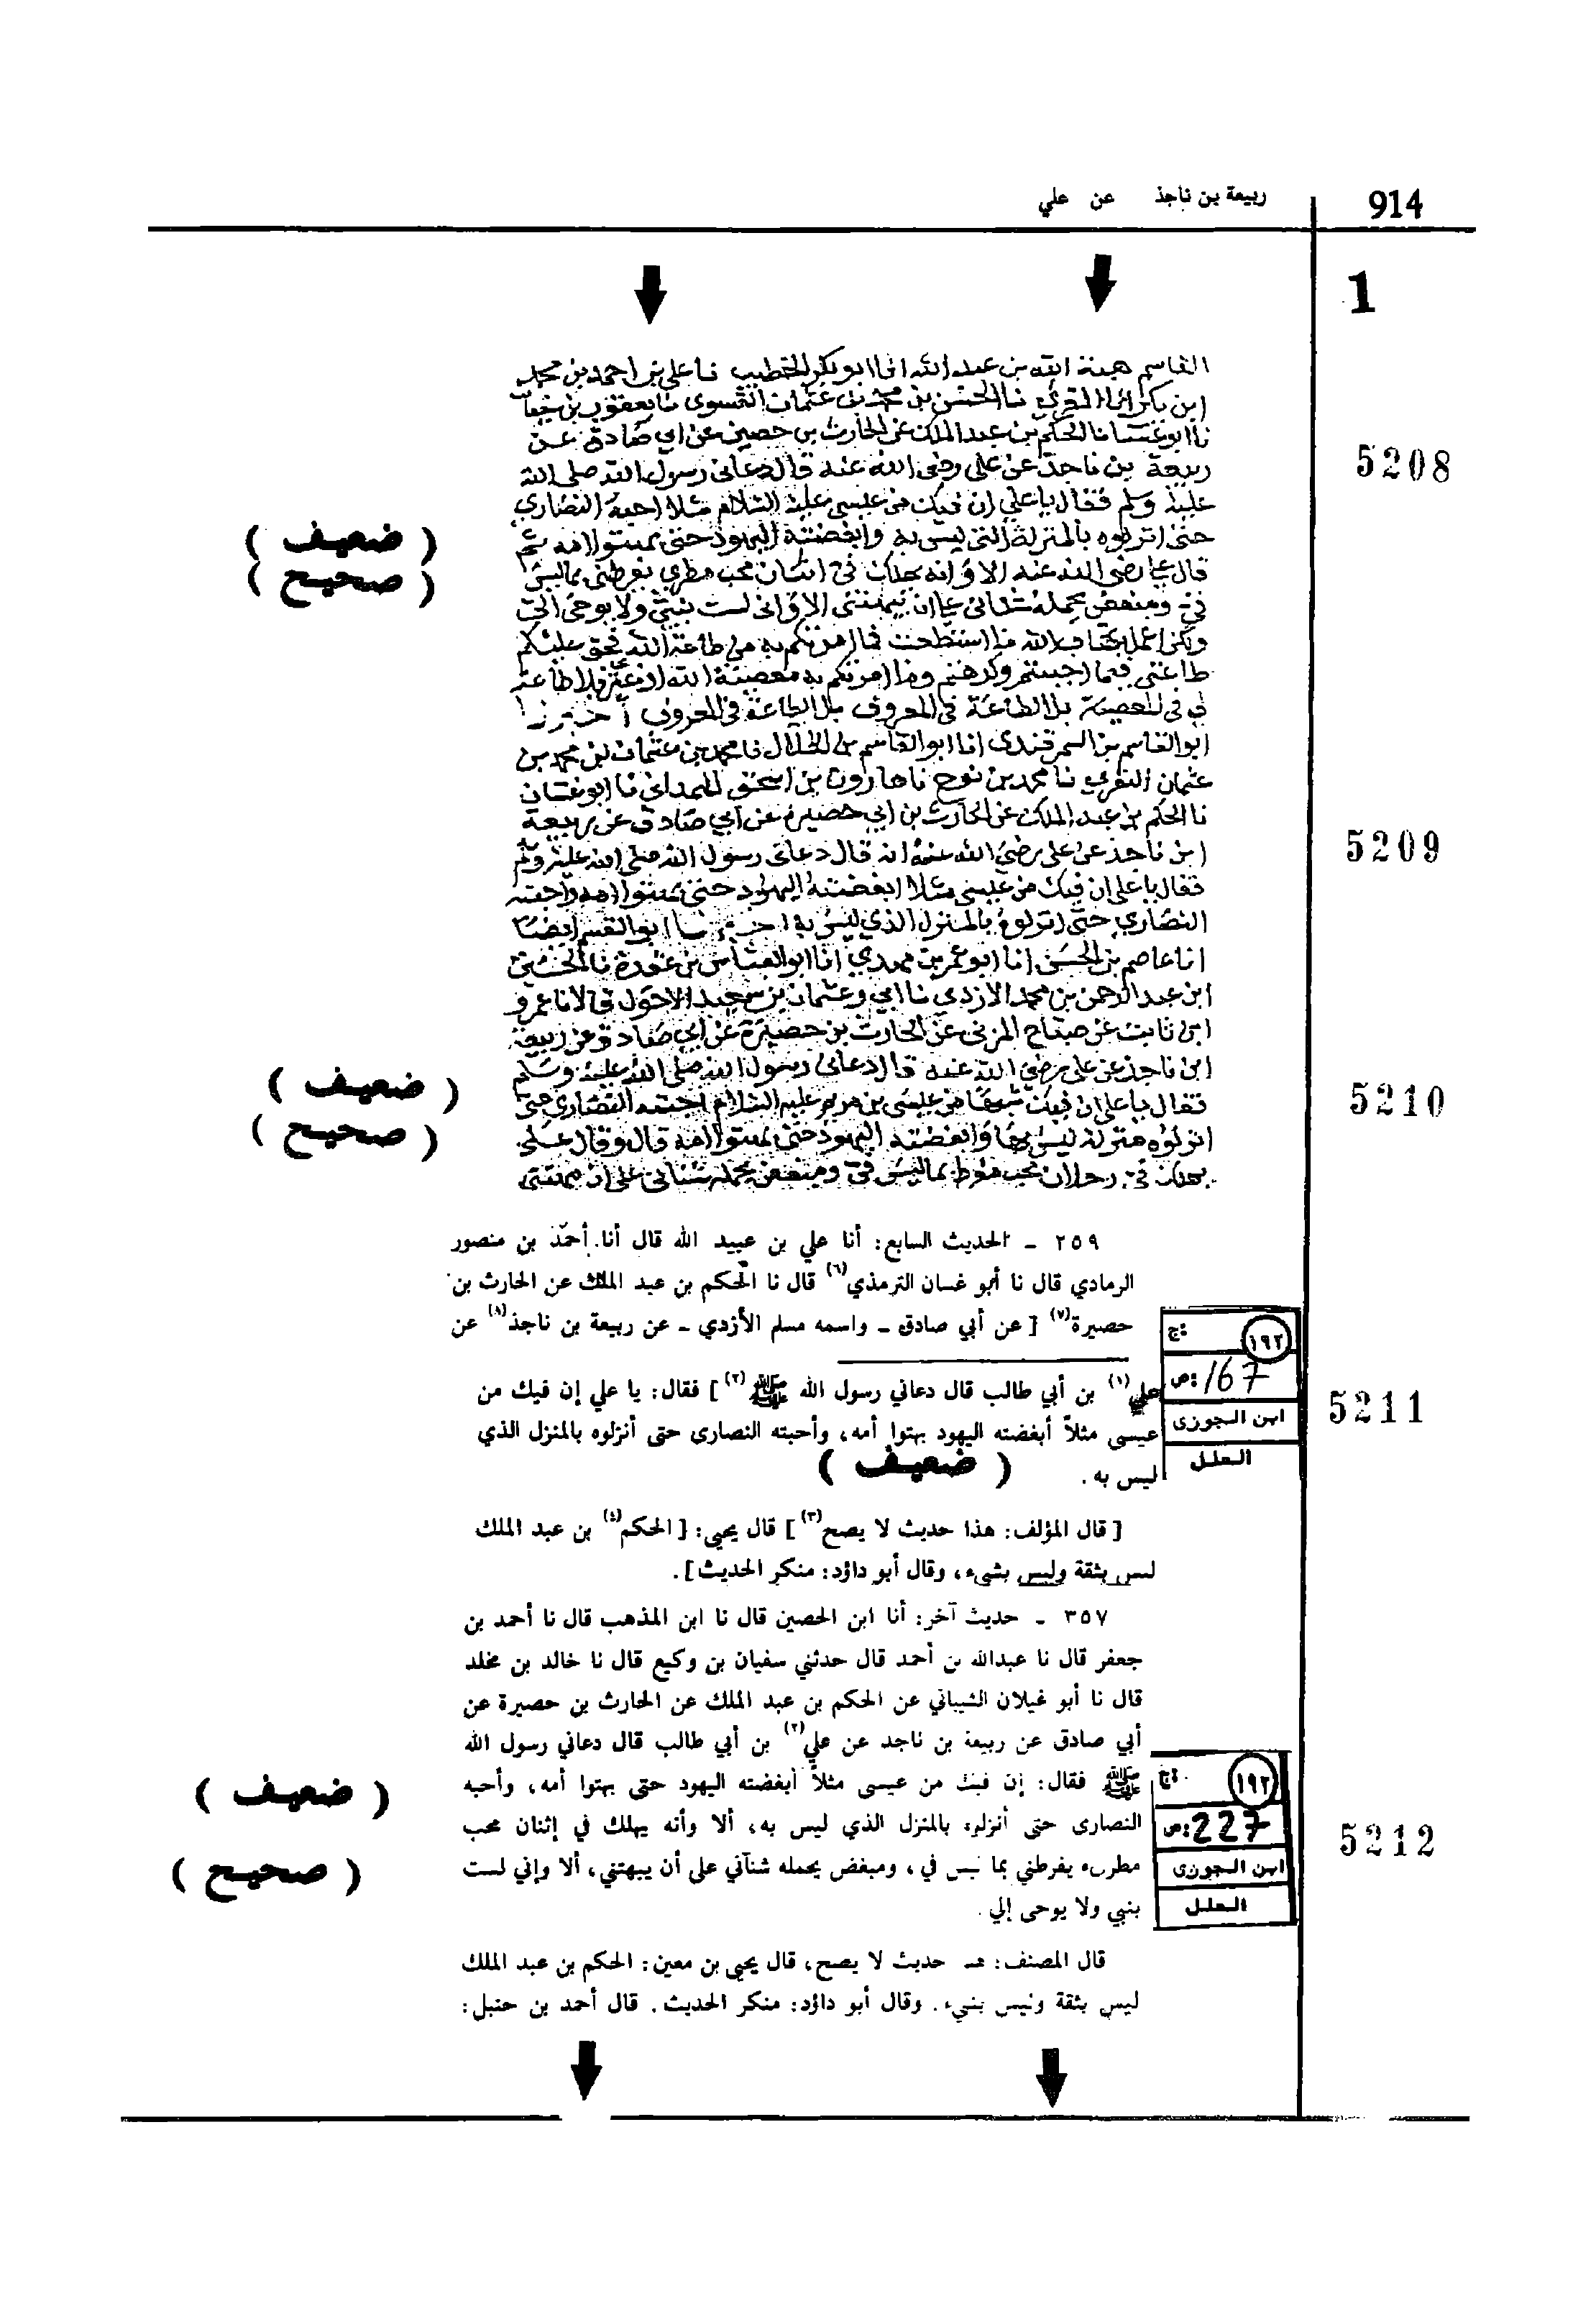 914
ربيعة بن ناجذ عن علي
1
القاسم هبة الله بن عبد الله انا ابو بكر الخطيب نا علي بن احمد بن محمد
ابن بكران المقري نا الحسن بن محمد بن عثمان الفسوي نا يعقوب بن سفيان
نا ابو غسان نا الحكم بن عبد الملك عن الحارث بن حصين عن ابي صادق عن
5208
ربيعة بن ناجذ عن علي رضي الله عنه قال دعاني رسول الله صلى الله
عليه وسلم فقال يا علي ان فيك من عيسى عليه السلام مثلا احبه النصاري
( ضعيف )
حتى انزلوه بالمنزلة التي ليس به وابغضته اليهود حتى بهتوا امه ثم
( صحيح )
قال علي رضي الله عنه الا وانه يهلك في اثنان محب مطري يفرطني بما ليس
في ومبغض يحمله شناني علي ان يبهتني الا واني لست بنبي ولا يوحى الي
ولكن اعمل بكتاب الله ما استطعت فما امرتكم به من طاعة الله فحق عليكم
طاعتي فيما احببتم وكرهتم وما امرتكم به معصية الله او غيري فلا طاعة
في المعصية الطاعة في المعروف الطاعة في المعروف اخبرنا
ابو القاسم بن السمرقندي انا ابو القاسم بن الخلال نا محمد بن عثمان بن محمد بن
عثمان النفري نا محمد بن نوح نا هارون بن اسحق الهمداني نا ابو غسان
نا الحكم بن عبد الملك عن الحارث بن ابي حصيرة عن ابي صادق عن ربيعة
5209
ابن ناجذ عن علي رضي الله عنه انه قال دعاني رسول الله صلى الله عليه وسلم
فقال يا علي ان فيك من عيسى مثلا ابغضته اليهود حتى بهتوا امه واحبته
النصاري حتى انزلوه بالمنزل الذي ليس به اخبرنا ابو القسم ايضا
انا عاصم بن الحسن انا ابو عمر بن مهدي انا ابو العباس بن عقدة نا الحسين
ابن عبد الرحمن بن محمد الازدي نا ابي وعثمان بن سعيد الاحول قالا نا عمرو
ابن ثابت عن صباح المزني عن الحارث بن حصيرة عن ابي صادق عن ربيعة
ابن ناجذ عن علي رضي الله عنه قال دعاني رسول الله صلى الله عليه وسلم
( ضعيف )
5210
فقال يا علي ان فيك شبها من عيسى بن مريم عليه السلام احبته النصاري حتى
( صحيح )
انزلوه منزلة ليس بها وابغضته اليهود حتى بهتوا امه قال وقال علي
يهلك في رجلان محب مفرط بما ليس في ومبغض يحمله شناني علي ان يبهتني
٢٥٩ ـ الحديث السابع: أنا علي بن عبيد الله قال أنا. أحمد بن منصور
الرمادي قال نا أبو غسان الترمذي(٦) قال نا الحكم بن عبد الملك عن الحارث بن
حصيرة(٧) [ عن أبي صادق ـ واسمه مسلم الأزدي ـ عن ربيعة بن ناجذ(٨) عن
ج: ١٩٢
ص: 167
ابن الجوزى
العلل
5211
علي(١) بن أبي طالب قال دعاني رسول الله ﷺ(٢) ] فقال: يا علي إن فيك من
عيسى مثلاً أبغضته اليهود بهتوا أمه، وأحبته النصارى حتى أنزلوه بالمنزل الذي
ليس به .
( ضعيف )
[ قال المؤلف: هذا حديث لا يصح(٣) ] قال يحيى: [ الحكم(٤) بن عبد الملك
ليس بثقة وليس بشيء، وقال أبو داؤد: منكر الحديث ] .
٣٥٧ ـ حديث آخر: أنا ابن الحصين قال نا ابن المذهب قال نا أحمد بن
جعفر قال نا عبدالله بن أحمد قال حدثني سفيان بن وكيع قال نا خالد بن مخلد
قال نا أبو غيلان الشيباني عن الحكم بن عبد الملك عن الحارث بن حصيرة عن
أبي صادق عن ربيعة بن ناجد عن علي(٢) بن أبي طالب قال دعاني رسول الله
ﷺ فقال: إن فيك من عيسى مثلاً أبغضته اليهود حتى بهتوا أمه، وأحبه
النصارى حتى أنزلوه بالمنزل الذي ليس به، ألا وأنه يهلك في إثنان محب
مطرىء يفرطني بما ليس في، ومبغض يحمله شنآني على أن يبهتني، ألا وإني لست
بنبي ولا يوحى إلي .
ج: ١٩٢
ص: 227
ابن الجوزى
العلل
5212
( ضعيف )
( صحيح )
قال المصنف: هـ حديث لا يصح، قال يحيى بن معين: الحكم بن عبد الملك
ليس بثقة وليس بشيء. وقال أبو داؤد: منكر الحديث. قال أحمد بن حنبل: